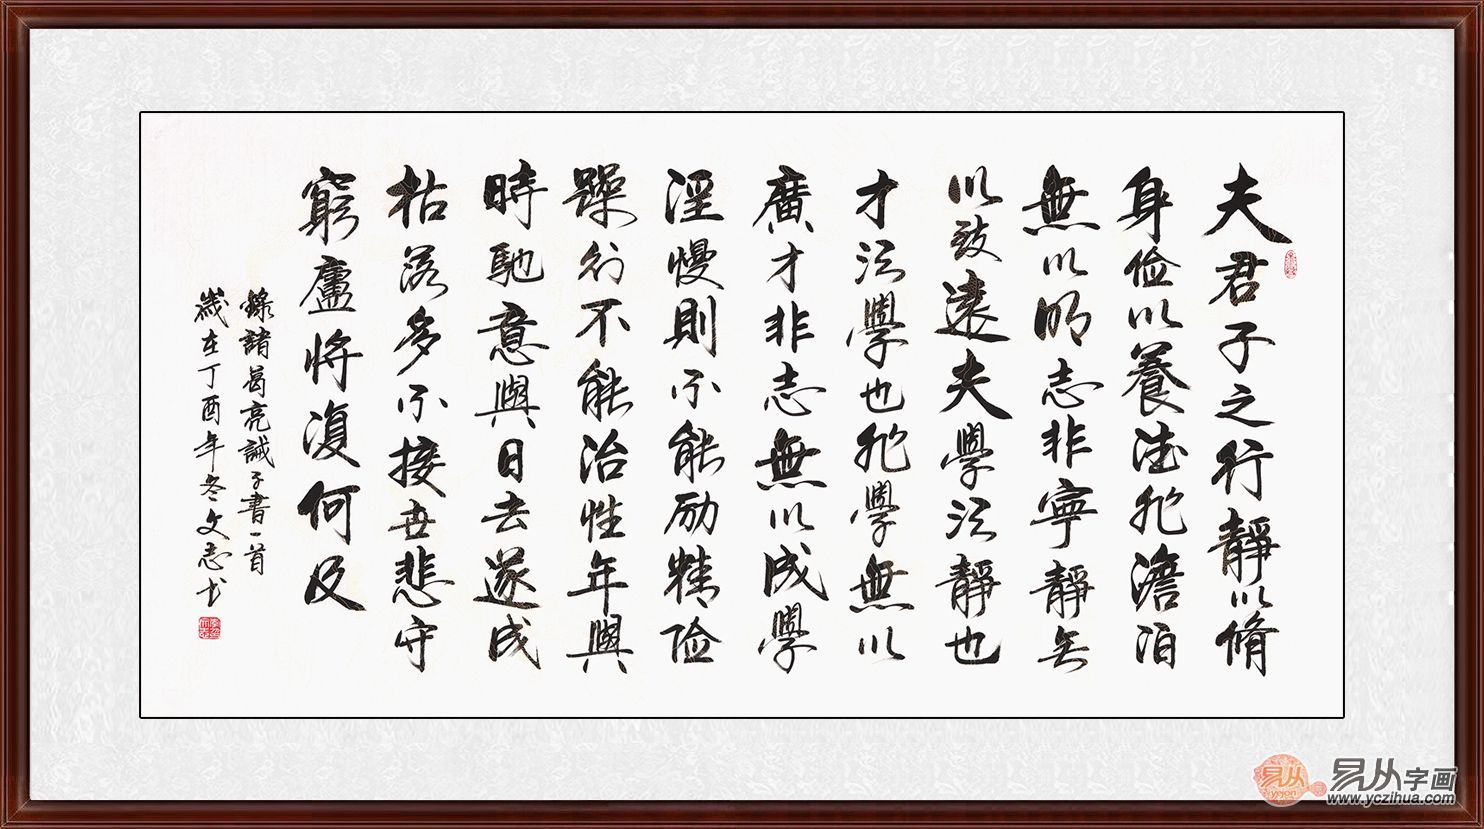 夫君子之行靜以脩
身俭以養德非澹泊
無以明志非寧靜无
以致遠夫學須靜也
才須學也非學無以
廣才非志無以成學
淫慢則不能励精险
躁行不能治性年與
時馳意與日去遂成
枯落多不接世悲守
窮廬將復何及
錄諸葛亮誡子書一首
歲在丁酉年冬文志书
易从
易从字画
www.yczihua.com